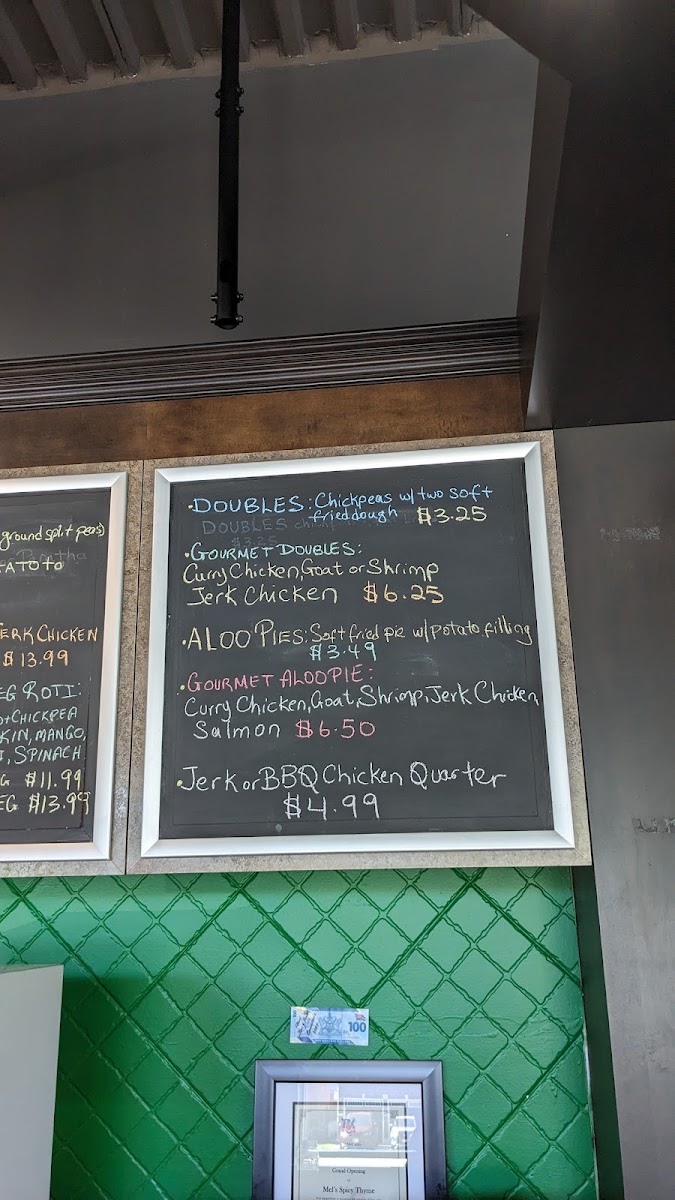 ground split peas)
TATOTO
JERK CHICKEN
$13.99
EG ROTI:
CHICKPEA
KIN, MANGO,
, SPINACH
G $11.99
EG $13.99
• DOUBLES: Chickpeas w/ two soft
fried dough $3.25
DOUBLES
$3.25
• GOURMET DOUBLES:
Curry Chicken, Goat or Shrimp
Jerk Chicken $6.25
• ALOO PIES: Soft fried pie w/ potato filling
$3.49
• GOURMET ALOO PIE:
Curry Chicken, Goat, Shrimp, Jerk Chicken,
Salmon $6.50
• Jerk or BBQ Chicken Quarter
$4.99
100
Grand Opening
Mel's Spicy Thyme